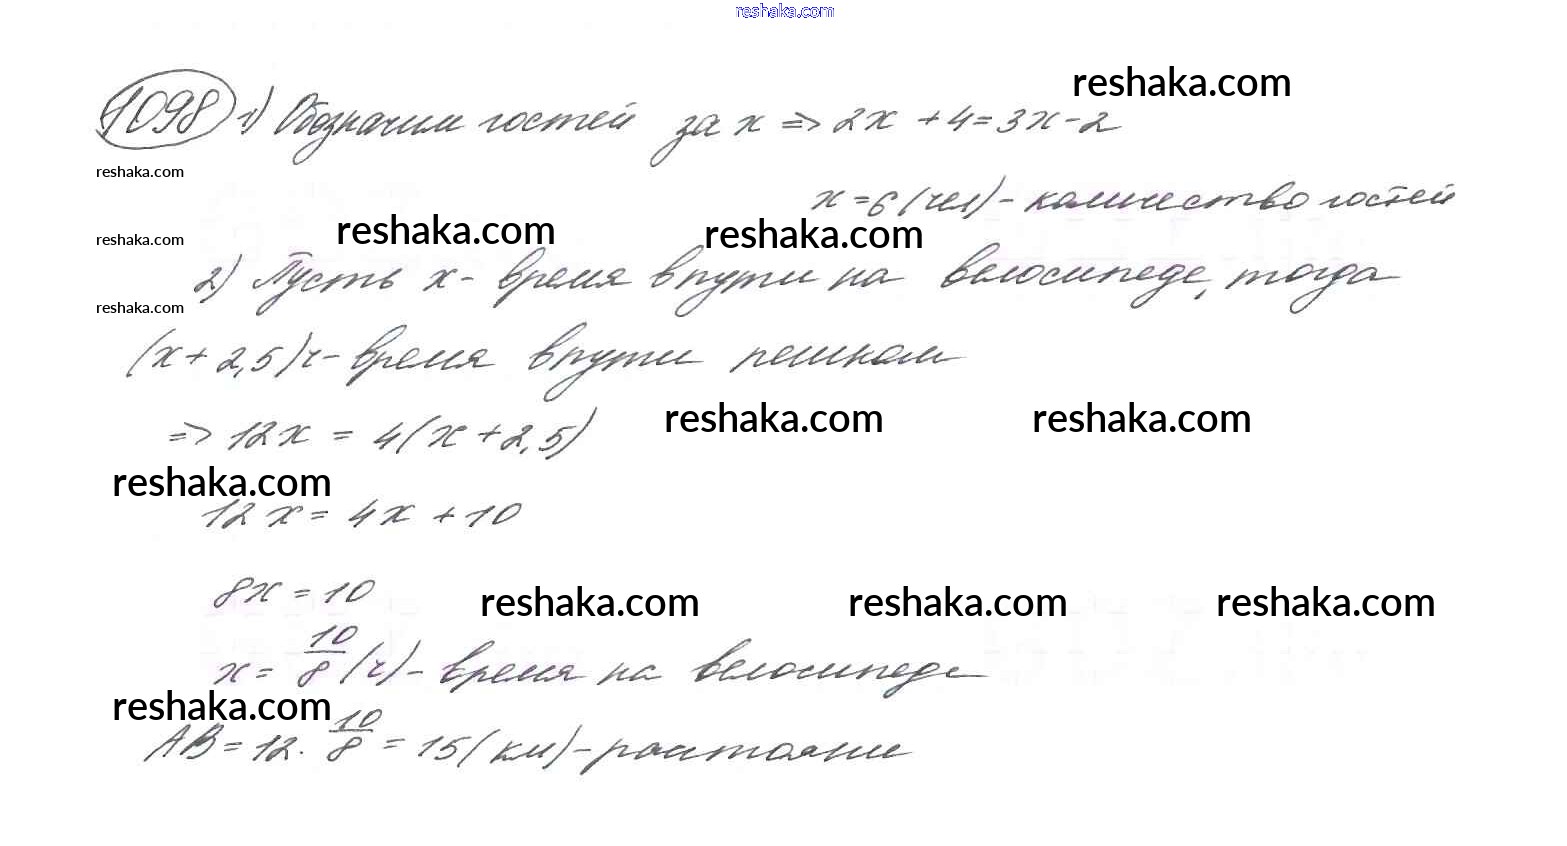 reshaka.com
reshaka.com
1098 1) Обозначим гостей за x => 2x + 4 = 3x - 2
reshaka.com
x = 6 (чел) - количество гостей
reshaka.com reshaka.com reshaka.com
2) Пусть x - время в пути на велосипеде, тогда
reshaka.com
(x + 2,5) ч - время в пути пешком
reshaka.com reshaka.com
=> 12x = 4(x + 2,5)
reshaka.com
12x = 4x + 10
8x = 10
reshaka.com reshaka.com reshaka.com
x = 10/8 (ч) - время на велосипеде
reshaka.com
AB = 12 · 10/8 = 15 (км) - расстояние